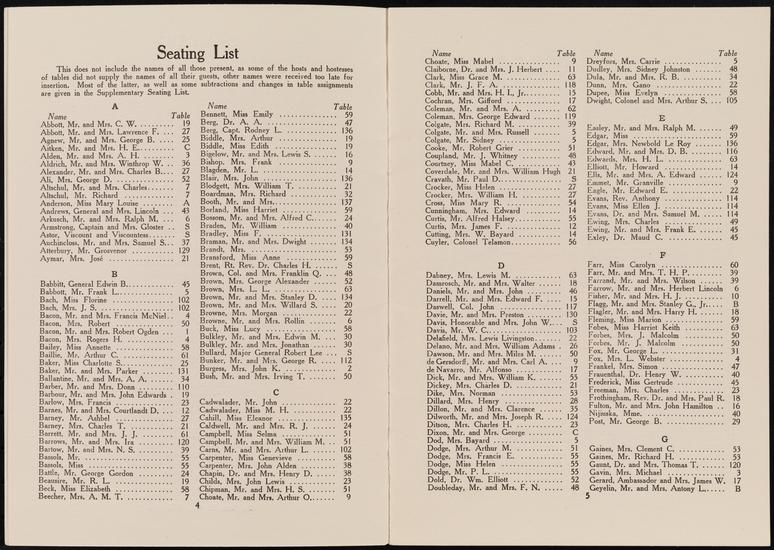 Seating List
This does not include the names of all those present, as some of the hosts and hostesses
of tables did not supply the names of all their guests, other names were received too late for
insertion. Most of the latter, as well as some subtractions and changes in table assignments
are given in the Supplementary Seating List.
A
Name Table
Abbott, Mr. and Mrs. C. W. .......... 19
Abbott, Mr. and Mrs. Lawrence F. .... 27
Agnew, Mr. and Mrs. George B. ...... 35
Aitken, Mr. and Mrs. H. E. .......... C
Alden, Mr. and Mrs. A. H. .......... 3
Aldrich, Mr. and Mrs. Winthrop W. ... 36
Alexander, Mr. and Mrs. Charles B. ... 27
Ali, Mrs. George D. .......... 52
Altschul, Mr. and Mrs. Charles ...... 7
Altschul, Mr. Richard .......... 7
Anderson, Miss Mary Louise ...... A
Andrews, General and Mrs. Lincoln .. 43
Arkusch, Mr. and Mrs. Ralph M. .... 6
Armstrong, Captain and Mrs. Gloster .. S
Astor, Viscount and Viscountess ...... S
Auchincloss, Mr. and Mrs. Samuel S. .. 37
Atterbury, Mr. Grosvenor .......... 129
Aymar, Mrs. José .......... 21
B
Babbitt, General Edwin B. .......... 45
Babbott, Mr. Frank L. .......... 5
Bach, Miss Florine .......... 102
Bach, Mrs. J. S. .......... 102
Bacon, Mr. and Mrs. Francis McNiel .. 4
Bacon, Mrs. Robert .......... 50
Bacon, Mr. and Mrs. Robert Ogden ... 1
Bacon, Mrs. Rogers H. .......... 4
Bailey, Miss Annette .......... 58
Baillie, Mr. Arthur C. .......... 61
Baker, Miss Charlotte S. .......... 25
Baker, Mr. and Mrs. Parker ........ 131
Ballantine, Mr. and Mrs. A. A. ...... 34
Barber, Mr. and Mrs. Donn ........ 110
Barbour, Mr. and Mrs. John Edwards . 19
Barlow, Mrs. Francis .......... 23
Barnes, Mr. and Mrs. Courtlandt D. ... 12
Barney, Mr. Ashbel .......... 27
Barney, Mrs. Charles T. .......... 21
Barrett, Mr. and Mrs. J. J. .......... 61
Barrows, Mr. and Mrs. Ira .......... 120
Bartow, Mr. and Mrs. N. S. .......... 39
Bassols, Mr. .......... 55
Bassols, Miss .......... 55
Battle, Mr. George Gordon .......... 24
Beausire, Mr. R. L. .......... 19
Beck, Miss Elizabeth .......... 58
Beecher, Mrs. A. M. T. .......... 7
Name Table
Bennett, Miss Emily .......... 59
Berg, Dr. A. A. .......... 47
Berg, Capt. Rodney L. .......... 136
Biddle, Mrs. Arthur .......... 19
Biddle, Miss Edith .......... 19
Bigelow, Mr. and Mrs. Lewis S. ...... 16
Bishop, Mrs. Frank .......... 9
Blagden, Mr. L. .......... 14
Blair, Mrs. John .......... 136
Blodgett, Mrs. William T. .......... 21
Boardman, Mrs. Richard .......... 32
Booth, Mr. and Mrs. .......... 137
Borland, Miss Harriet .......... 59
Bossom, Mr. and Mrs. Alfred C. ...... 24
Braden, Mr. William .......... 40
Bradley, Miss F. .......... 131
Braman, Mr. and Mrs. Dwight ...... 134
Brandt, Mrs. .......... 53
Bransford, Miss Anne .......... 59
Brent, Rt. Rev. Dr. Charles H. ...... S
Brown, Col. and Mrs. Franklin Q. .... 48
Brown, Mrs. George Alexander ...... 52
Brown, Mrs. L. L. .......... 63
Brown, Mr. and Mrs. Stanley D. ..... 134
Brown, Dr. and Mrs. Willard S. ..... 20
Browne, Mrs. Morgan .......... 22
Browne, Mr. and Mrs. Rollin ........ 6
Buck, Miss Lucy .......... 58
Bulkley, Mr. and Mrs. Edwin M. .... 30
Bulkley, Mr. and Mrs. Jonathan ..... 30
Bullard, Major General Robert Lee ... S
Bunker, Mr. and Mrs. George R. .... 112
Burgess, Mrs. John K. .......... 2
Bush, Mr. and Mrs. Irving T. ...... 50
C
Cadwalader, Mr. John .......... 22
Cadwalader, Miss M. H. .......... 22
Cahill, Miss Eleanor .......... 135
Caldwell, Mr. and Mrs. R. J. ........ 24
Campbell, Miss Selma .......... 51
Campbell, Mr. and Mrs. William M. .. 51
Carns, Mr. and Mrs. Arthur L. ...... 102
Carpenter, Miss Genevieve .......... 58
Carpenter, Mrs. John Alden ........ 38
Chapin, Dr. and Mrs. Henry D. ..... 38
Childs, Mrs. John Lewis .......... 23
Chipman, Mr. and Mrs. H. S. ...... 51
Choate, Mr. and Mrs. Arthur O. ...... 9
4
Name Table
Choate, Miss Mabel .......... 9
Claiborne, Dr. and Mrs. J. Herbert .... 11
Clark, Miss Grace M. .......... 63
Clark, Mr. J. F. A. .......... 118
Cobb, Mr. and Mrs. H. I., Jr. ...... 15
Cochran, Mrs. Gifford .......... 17
Coleman, Mr. and Mrs. A. .......... 62
Coleman, Mrs. George Edward ...... 119
Colgate, Mrs. Richard M. .......... 39
Colgate, Mr. and Mrs. Russell ...... 5
Colgate, Mr. Sidney .......... 5
Cooke, Mr. Robert Grier .......... 51
Coupland, Mr. J. Whitney .......... 48
Courtney, Miss Mabel C. .......... 43
Coverdale, Mr. and Mrs. William Hugh 21
Cravath, Mr. Paul D. .......... S
Crocker, Miss Helen .......... 27
Crocker, Mrs. William H. .......... 27
Cross, Miss Mary R. .......... 54
Cunningham, Mrs. Edward .......... 14
Curtis, Mr. Alfred Halsey .......... 55
Curtis, Mrs. James F. .......... 12
Cutting, Mrs. W. Bayard .......... 14
Cuyler, Colonel Telamon .......... 56
D
Dabney, Mrs. Lewis M. .......... 63
Damrosch, Mr. and Mrs. Walter ...... 18
Daniels, Mr. and Mrs. John .......... 46
Darrell, Mr. and Mrs. Edward F. .... 15
Daswell, Col. John .......... 117
Davie, Mr. and Mrs. Preston ........ 130
Davis, Honorable and Mrs. John W. ... S
Davis, Mr. W. C. .......... 103
Delafield, Mrs. Lewis Livingston ...... 22
Delano, Mr. and Mrs. William Adams . 26
Dawson, Mr. and Mrs. Miles M. .... 50
de Gersdorff, Mr. and Mrs. Carl A. ... 9
de Navarro, Mr. Alfonso .......... 17
Dick, Mr. and Mrs. William K. ...... 55
Dickey, Mrs. Charles D. .......... 21
Dike, Mrs. Norman .......... 53
Dillard, Mrs. Henry .......... 28
Dillon, Mr. and Mrs. Clarence ...... 35
Dilworth, Mr. and Mrs. Joseph R. .... 124
Ditson, Mrs. Charles H. .......... 23
Dixon, Mr. and Mrs. George ........ C
Dod, Mrs. Bayard .......... 5
Dodge, Mrs. Arthur M. .......... 51
Dodge, Mrs. Francis E. .......... 55
Dodge, Miss Helen .......... 55
Dodge, Mr. P. L. .......... 55
Dold, Dr. Wm. Elliott .......... 52
Doubleday, Mr. and Mrs. F. N. ...... 48
Name Table
Dreyfors, Mrs. Carrie .......... 5
Dudley, Mrs. Sidney Johnston ...... 48
Dula, Mr. and Mrs. R. B. .......... 34
Dunn, Mrs. Gano .......... 22
Dupee, Miss Evelyn .......... 58
Dwight, Colonel and Mrs. Arthur S. ... 105
E
Easley, Mr. and Mrs. Ralph M. ...... 49
Edgar, Miss .......... 59
Edgar, Mrs. Newbold Le Roy ...... 136
Edward, Mr. and Mrs. D. B. ...... 116
Edwards, Mrs. H. L. .......... 63
Elliott, Mr. Howard .......... 14
Ells, Mr. and Mrs. A. Edward ...... 124
Emmet, Mr. Granville .......... 9
Eagle, Mr. Edward E. .......... 22
Evans, Rev. Anthony .......... 114
Evans, Miss Ellen J. .......... 114
Evans, Dr. and Mrs. Samuel M. ..... 114
Ewing, Mrs. Charles .......... 49
Ewing, Mr. and Mrs. Frank E. ...... 45
Exley, Dr. Maud C. .......... 45
F
Farr, Miss Carolyn .......... 60
Farr, Mr. and Mrs. T. H. P. ........ 39
Farrand, Mr. and Mrs. Wilson ...... 39
Farrow, Mr. and Mrs. Herbert Lincoln 6
Fisher, Mr. and Mrs. H. J. .......... 10
Flagg, Mr. and Mrs. Stanley G., Jr. ... B
Flagler, Mr. and Mrs. Harry H. ..... 18
Fleming, Miss Marion .......... 59
Fobes, Miss Harriet Keith .......... 63
Forbes, Mrs. J. Malcolm .......... 50
Forbes, Mr. J. Malcolm .......... 50
Fox, Mr. George L. .......... 31
Fox, Mrs. L. Webster .......... 4
Frankel, Mrs. Simon .......... 47
Frauenthal, Dr. Henry W. .......... 40
Frederick, Miss Gertrude .......... 45
Freeman, Mrs. Charles .......... 23
Frothingham, Rev. Dr. and Mrs. Paul R. 18
Fulton, Mr. and Mrs. John Hamilton .. 16
Nijinska, Mme. .......... 40
Post, Mr. George B. .......... 29
G
Gaines, Mrs. Clement C. .......... 53
Gaines, Mr. Richard H. .......... 53
Gaunt, Dr. and Mrs. Thomas T. .... 120
Gavin, Mrs. Michael .......... 3
Gerard, Ambassador and Mrs. James W. 17
Geyelin, Mr. and Mrs. Antony L. ..... B
5